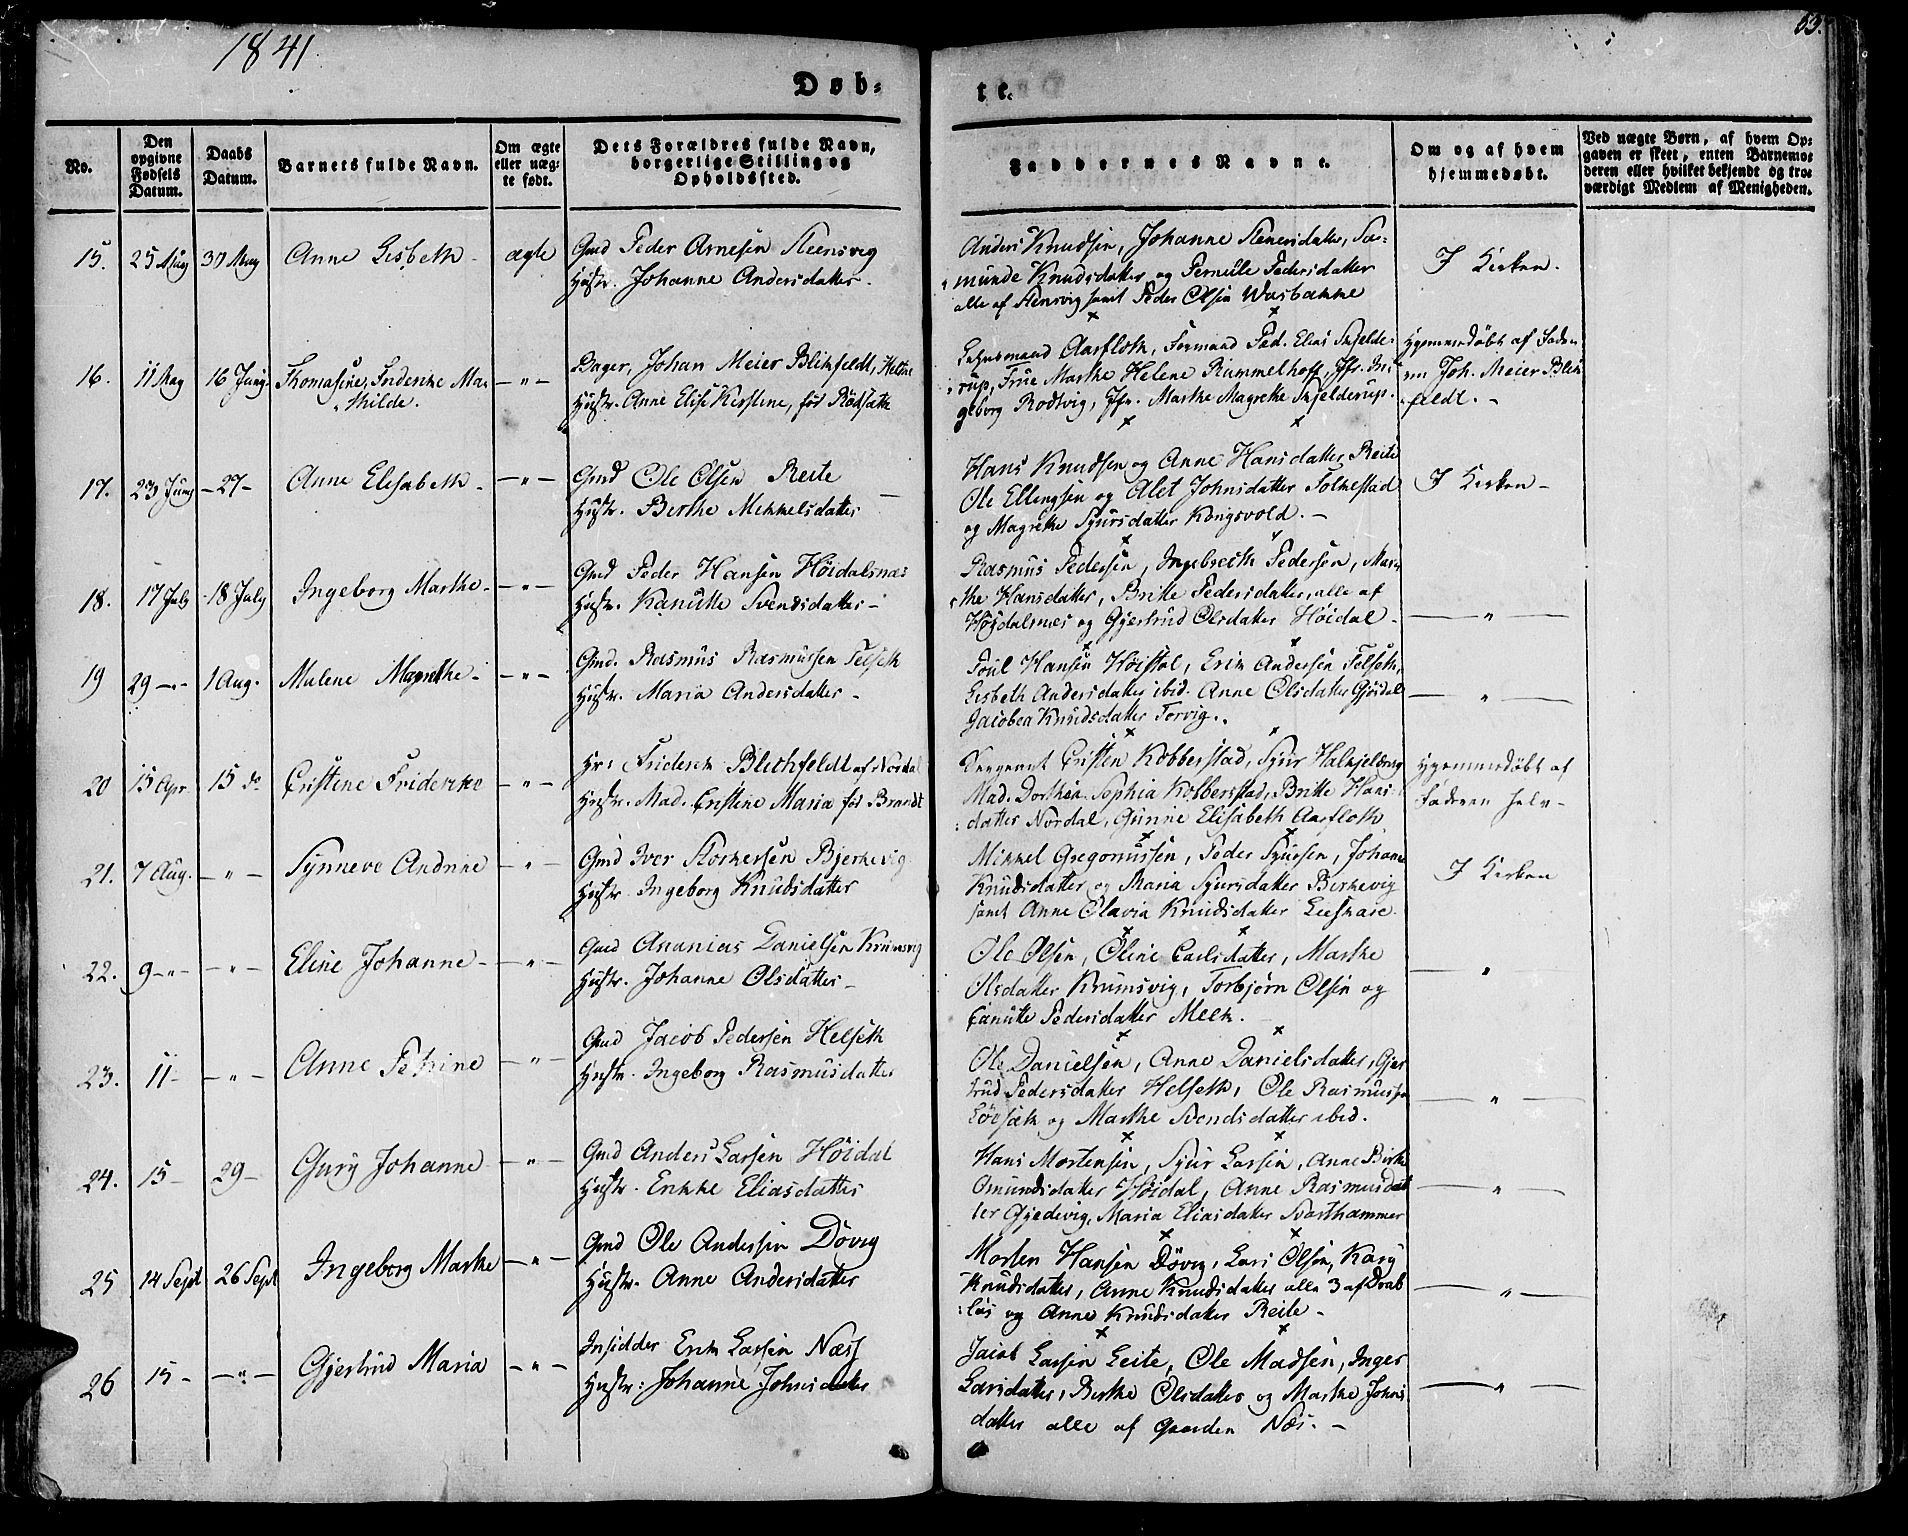 1841
Døb-
te.
No.
Den opgivne Fødsels Datum.
Daabs Datum.
Barnets fulde Navn.
Om ægte eller uæg-te født.
Dets Forældres fulde Navn, borgerlige Stilling og Opholdssted.
Faddernes Navne.
Om og af hvem hjemmedøbt.
Ved uægte Børn, af hvem Op-
gaven er skeet, enten Barnemo-
deren eller hvilket bekjendt og tro-
værdigt Medlem af Menigheden.
15. 25 May 30 May Anne Lisbeth - ægte Gmd Peder Arnesen Steensvig
Hustr. Johanne Andersdatter -
Anders Knudsen, Johanne Stenersdatter, Sæ-
munde Knudsdatter og Pernille Pedersdatter
alle af Stensvig samt Peder Olsen Wasbakke
I Kirken.
16. 11 May 16 Juny Thomasine Friderike Ma-
thilde.
-"- Bager, Johan Meier Blikfeldt,
Hustr. Anne Elise Kirstine, før Rödsæth
Lehnsmand Aarfloth, Formand Ped. Elias Schjelde-
rup, Frue Marthe Helene Rummelhoff, Jfr. In-
geborg Rodtvig, Jfr. Marthe Magrethe Schjelderup.
Hjemmedøbt af Fade-
ren Joh. Meier Blik
feldt. -
17. 23 Juny -27- Anne Elisabeth - -"- Gmd Ole Olsen Reite
Hustr. Birthe Mikkelsdatter
Hans Knudsen og Anne Hansdatter Reite
Ole Ellingsen og Alet Johnsdatter Folkestad
og Magrethe Sjursdatter Kongsvold. -
I Kirken -
18. 17 July 18 July Ingeborg Marthe - -"- Gmd Peder Hansen Höidalsnæs
Hustr. Kanutte Svendsdatter -
Rasmus Pedersen, Ingebreth Pedersen, Mar-
the Hansdatter, Brithe Pedersdatter, alle af
Höydalsnæs og Gjertrud Olsdatter Höidal -
-"-
19 29 -"- 1 Aug. Malene Magrethe - -"- Gmd. Rasmus Rasmussen Felseth
Hustr. Maria Andersdatter -
Poul Hansen Höistøl, Erik Andersen Felseth,
Lisbeth Andersdatter ibid. Anne Olsdatter Gjöidal
Jacobea Knudsdatter Torvig.
-"-
20 15 Apr 15 do Cristine Friderike -"- Hr: Friderik Blichfeldt af Nordal
Hustr. Mad. Cristine Maria før Brandt
Sergeant Cristen Kobberstad, Sjur Halkjelsvig
Mad. Dorthea Sophia Kobberstad, Brithe Hans-
datter Nordal, Gunne Elisabeth Aarfloth
Hjemmedøbt af
Faderen selv -
21. 7 Aug. -"- Synneve Andrine -"- Gmd Iver Storkersen Bjerkevig
Hustr. Ingeborg Knudsdatter
Mikkel Gregoriussen, Peder Sjursen, Johanne
Knudsdatter og Maria Sjursdatter Birkevig
samt Anne Olavia Knudsdatter Leeskare.
I Kirken
22. 9 -"- -"- Eline Johanne - -"- Gmd Ananias Danielsen Krumsvig
Hustr. Johanne Olsdatter -
Ole Olsen, Oline Carlsdatter, Marthe
Olsdatter Krumsvig, Torbjørn Olsen og
Canutte Pedersdatter Melk. -
-"-
23. 11 - -"- Anne Petrine -"- Gmd Jacob Pedersen Helseth
Hustr. Ingeborg Rasmusdatter
Ole Danielsen, Anne Danielsdatter, Gjer
trud Pedersdatter Helseth, Ole Rasmussen
Löesæth og Marthe Svendsdatter ibid.
-"-
24. 15 - 29 - Gury Johanne -"- Gmd Anders Larsen Höidal
Hustr. Enkke Eliasdatter
Hans Mortensen, Sjur Larsen, Anne Birthe
Omundsdatter Höidal, Anne Rasmusdat
ter Gjedevig, Maria Eliasdatter Svarthammer
-"-
25 14 Sept 26 Sept Ingeborg Marthe -"- Gmd Ole Andersen Dövig
Hustr. Anne Andersdatter
Morten Hansen Dövig, Lars Olsen, Kary
Knudsdatter, Anne Knudsdatter alle 3 af Drab
løs og Anne Knudsdatter Reite -
-"-
26 15 - -"- Gjertrud Maria -"- Insidder Erik Larsen Næss
Hustr: Johanne Johnsdatter
Jacob Larsen Leite, Ole Madsen, Inger
Larsdatter, Birthe Olsdatter og Marthe Johns
datter alle af Gaarden Næs. -
-"-